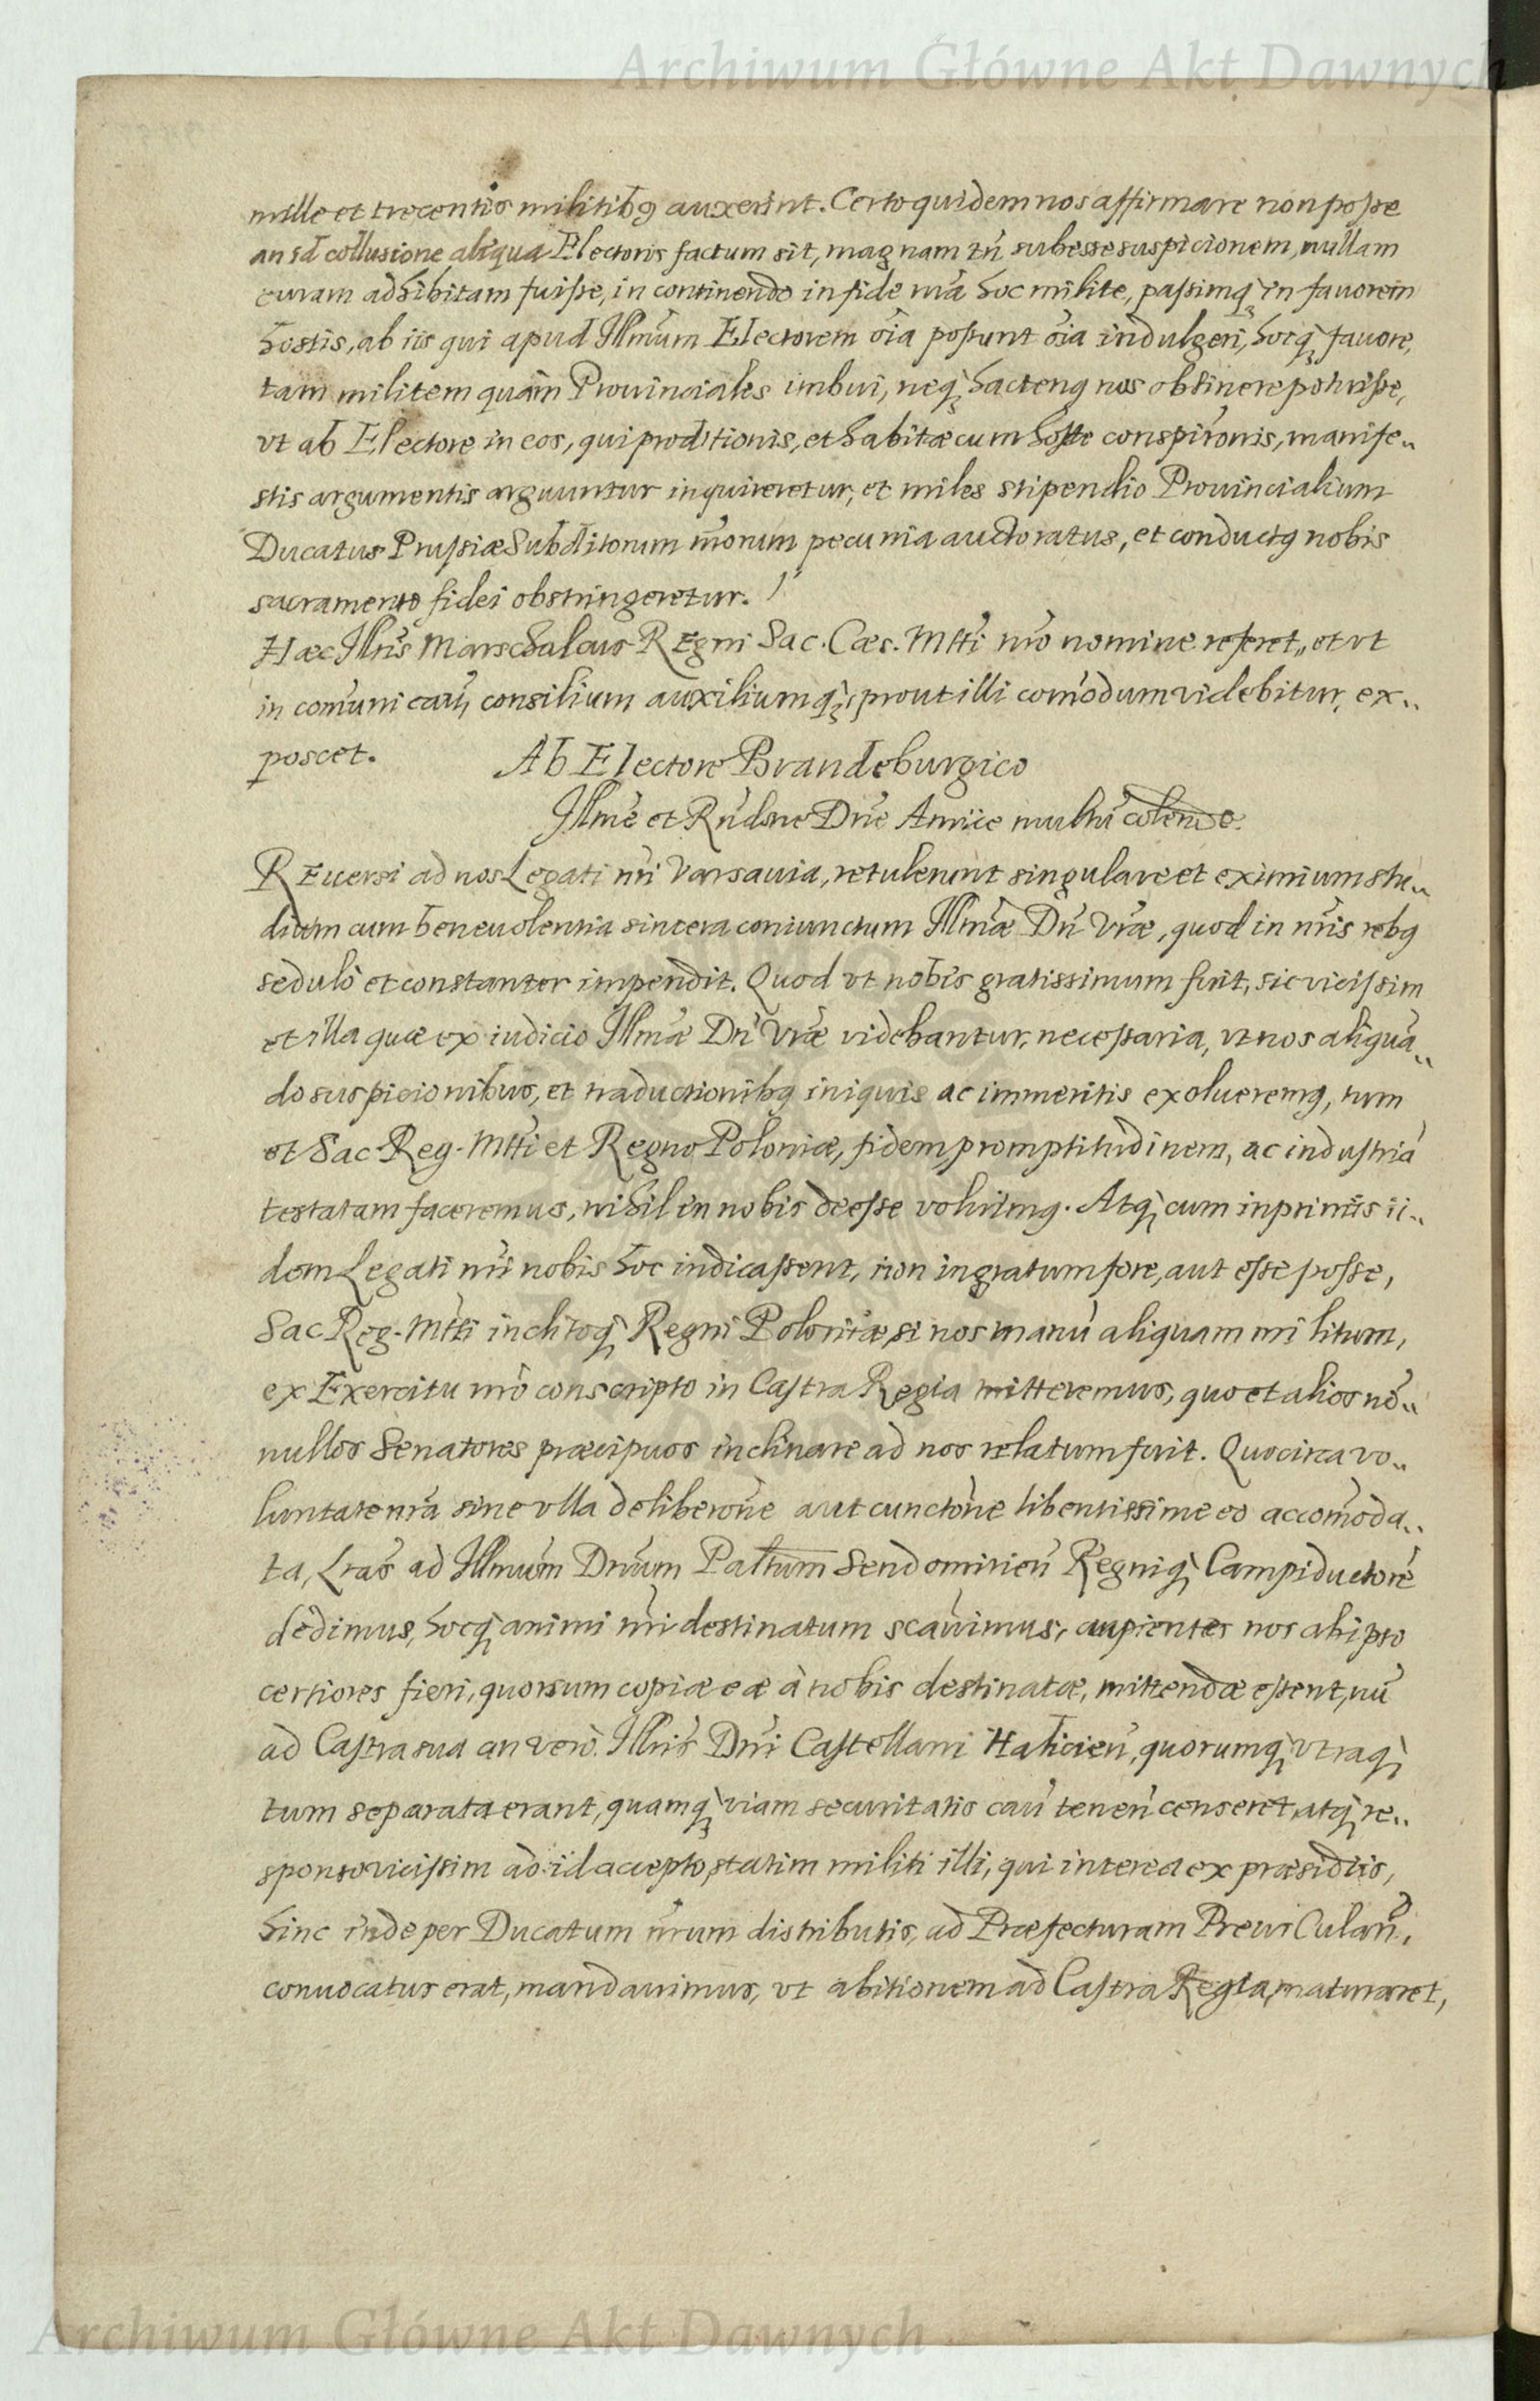 Archiwum Główne Akt Dawnych
mille et trecentis militibꝯ auxerint. Certo quidem nos affirmare non posse
an id collusione aliqua Electoris factum sit, magnam tñ subesse suspicionem, nullam
curam adhibitam fuisse, in continendo in fide nrã hoc milite, passimq̨ in fauorem
hostis, ab iis qui apud Illmũm Electorem oĩa possunt oĩa indulgeri, hocq̨ fauore,
tam militem quàm Prouinciales imbui, neq̨ hactenꝯ nos obtinere potuisse,
vt ab Electore in eos, qui proditionis, et habitæ cum hoste conspirõnis, manife„
stis argumentis arguuntur inquireretur, et miles stipendio Prouincialium
Ducatus Prussiæ Subditorum nrõrum pecunia auctoratus, et conductꝯ nobis
sacramento fidei obstringeretur.
Hæc Illris̃ Marschalcus Regni Sac. Cæs. Mtti nrõ nomine referet, et vt
in comũni caũ, consilium auxiliumq̨, prout illi com̃odum videbitur, ex„
poscet.
Ab Electore Brandeburgico
Illmẽ et Rñdme Dñe Amice multũ colende.
REuersi ad nos Legati nrĩ Varsauia, retulerunt singulare et eximium stu„
dium cum beneuolentia sincera coniunctum Illmæ̃ Dñ Vræ̃, quod in nrĩs rebꝯ
sedulò et constanter impendit. Quod vt nobis gratissimum fuit, sic vicissim
et illa quæ ex iudicio Illmæ̃ Dñ Vræ̃ videbantur, necessaria, vt nos aliquã„
do suspicionibus, et traductionibꝯ iniquis ac immeritis exolueremꝯ, tum
et Sac. Reg. Mtti et Regno Poloniæ, fidem, promptitudinem, ac industriã
testatam faceremus, nihil in nobis deesse voluimꝯ. Atq̨ cum inprimis ii„
dem Legati nrĩ nobis hoc indicassent, non ingratum fore, aut esse posse,
Sac Reg. Mtti inclitoq̨ Regni Poloniæ, si nos manũ aliquam militum,
ex Exercitu nrõ conscripto in Castra Regia mitteremus, quo et alios nõ„
nullos Senatores præcipuos inclinare ad nos relatum fuit. Quocirca vo„
luntate nrã sine vlla deliberõne aut cunctõne libentissime eo accom̃oda„
ta, Lras̃ ad Illmũm Dnũm Paltm̃ Sendomirieñ Regniq̨ Campiductorẽ
dedimus, hocq̨ animi nrĩ destinatum scauimus, cupientes nos ab ipso
certiores fieri, quorsum copiæ eæ à nobis destinatæ, mittendæ essent, nũ
ad Castra sua an verò Illris̃ Dnĩ Castellani Halicieñ, quorumq̨ vtraq̨
tum separata erant, quamq̨ viam securitatis caũ teneri censeret, atq̨ re„
sponso vicissim ad id accepto, statim militi illi, qui interea ex præsidiis,
hinc inde per Ducatum nrũm distributis, ad Præfecturam
conuocatus erat, mandauimus, vt abitionem ad Castra Regia maturaret,
Archiwum Główne Akt Dawnych